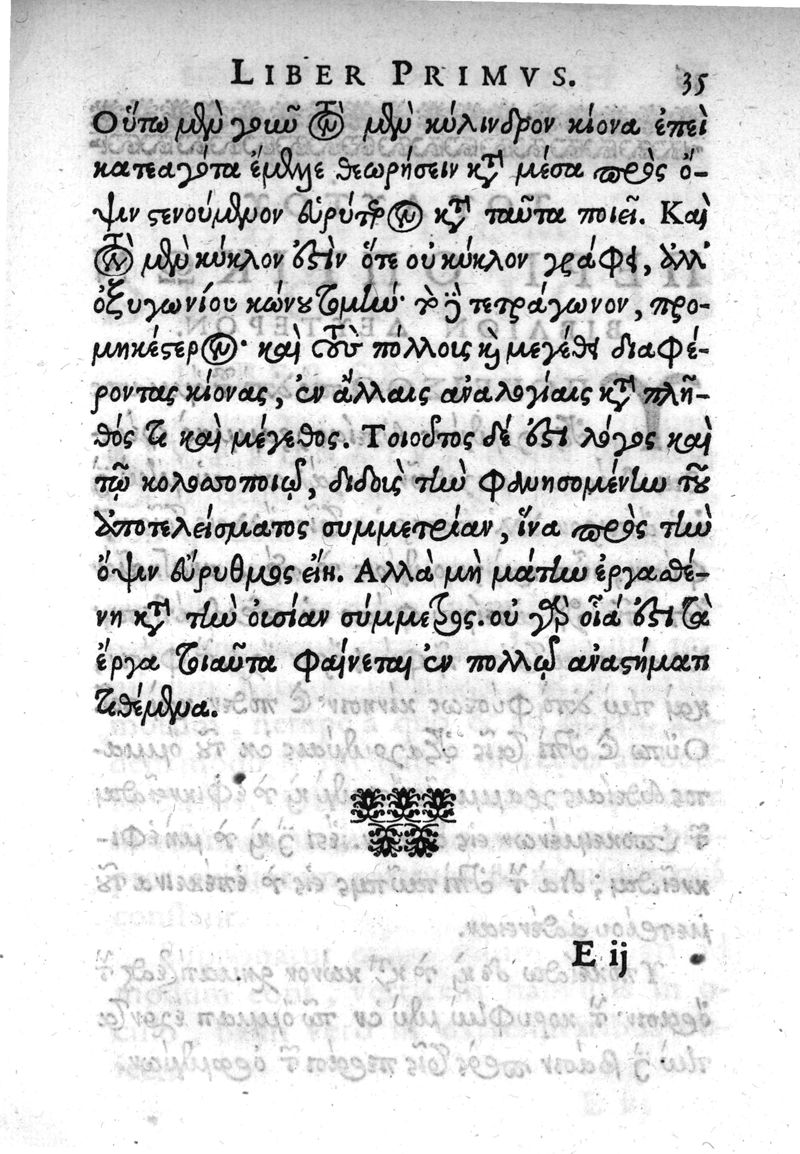 LIBER PRIMVS. 35
Οὕτω μὲν γοῦν τὸν μὲν κύλινδρον κίονα ἐπεὶ
κατεαγότα ἔμελλε θεωρήσειν κατὰ μέσα πρὸς ὄ-
ψιν στενούμενον εὐρύτερον κατὰ ταῦτα ποιεῖ. Καὶ
τὸν μὲν κύκλον ἐστὶν ὅτε οὐ κύκλον γράφει, ἀλλ'
ὀξυγωνίου κώνου τομήν· τὸ δὲ τετράγωνον, προ-
μηκέστερον· καὶ τοὺς πόλλοις καὶ μεγέθει διαφέ-
ροντας κίονας, ἐν ἄλλαις ἀναλογίαις κατὰ πλῆ-
θός τε καὶ μέγεθος. Τοιοῦτος δέ ἐστι λόγος καὶ
τῷ κολοσσοποιῷ, διδοὶς τὴν φανησομένην τοῦ
ἀποτελείσματος συμμετρίαν, ἵνα πρὸς τὴν
ὄψιν εὔρυθμος εἴη. Αλλὰ μὴ μάτην ἐργασθέ-
νη κατὰ τὴν οισίαν σύμμετρος. οὐ γὰρ οἷά ἐστι τὰ
ἔργα τοιαῦτα φαίνεται ἐν πολλῷ ἀναστήματι
τιθέμενα.
E ij